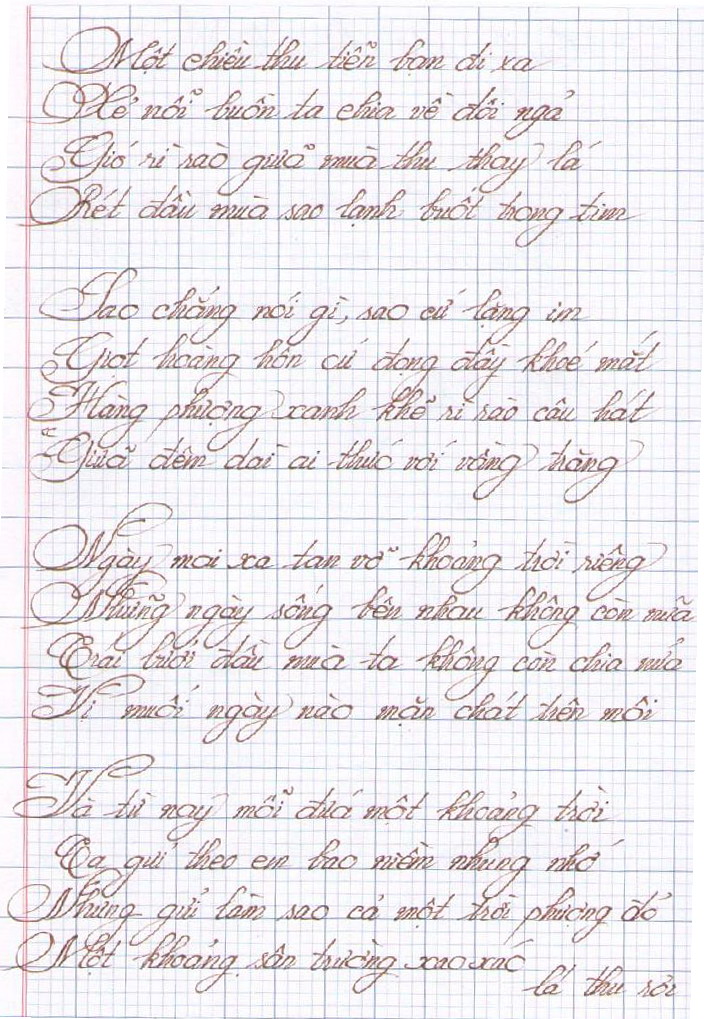 Một chiều thu tiễn bạn đi xa
Xẻ nỗi buồn ta chia về đôi ngả
Gió rì rào giữa mùa thu thay lá
Rét đầu mùa sao lạnh buốt trong tim
Sao chẳng nói gì, sao cứ lặng im
Giọt hoàng hôn cứ đong đầy khoé mắt
Hàng phượng xanh khẽ rì rào câu hát
Giữa đêm dài ai thức với vầng trăng
Ngày mai xa tan vỡ khoảng trời riêng
Những ngày sống bên nhau không còn nữa
Trái bưởi đầu mùa ta không còn chia nửa
Vị muối ngày nào mặn chát trên môi
Và từ nay mỗi đứa một khoảng trời
Ta gửi theo em bao niềm nhung nhớ
Nhưng gửi làm sao cả một trời phượng đỏ
Một khoảng sân trường xao xác
lá thu rơi